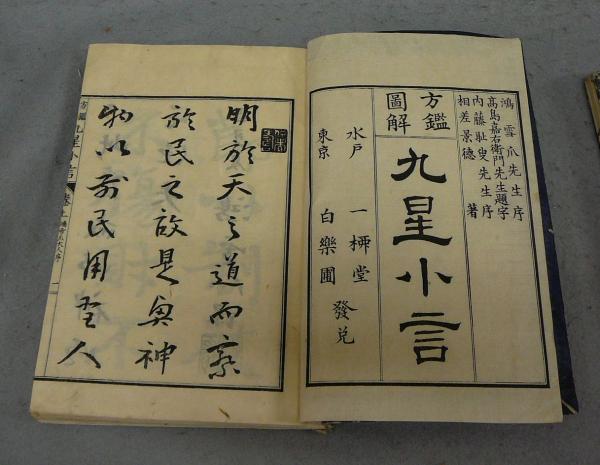 鴻雪爪先生序
高島嘉右衛門先生題字
内藤耻叟先生序
相差景德 著
方鑑
圖解
九星小言
水戸 一樺堂
東京 白樂圃
發兌
明於天之道而察
於民之故是興神
物以前民用聖人
方鑑九星小言 卷上